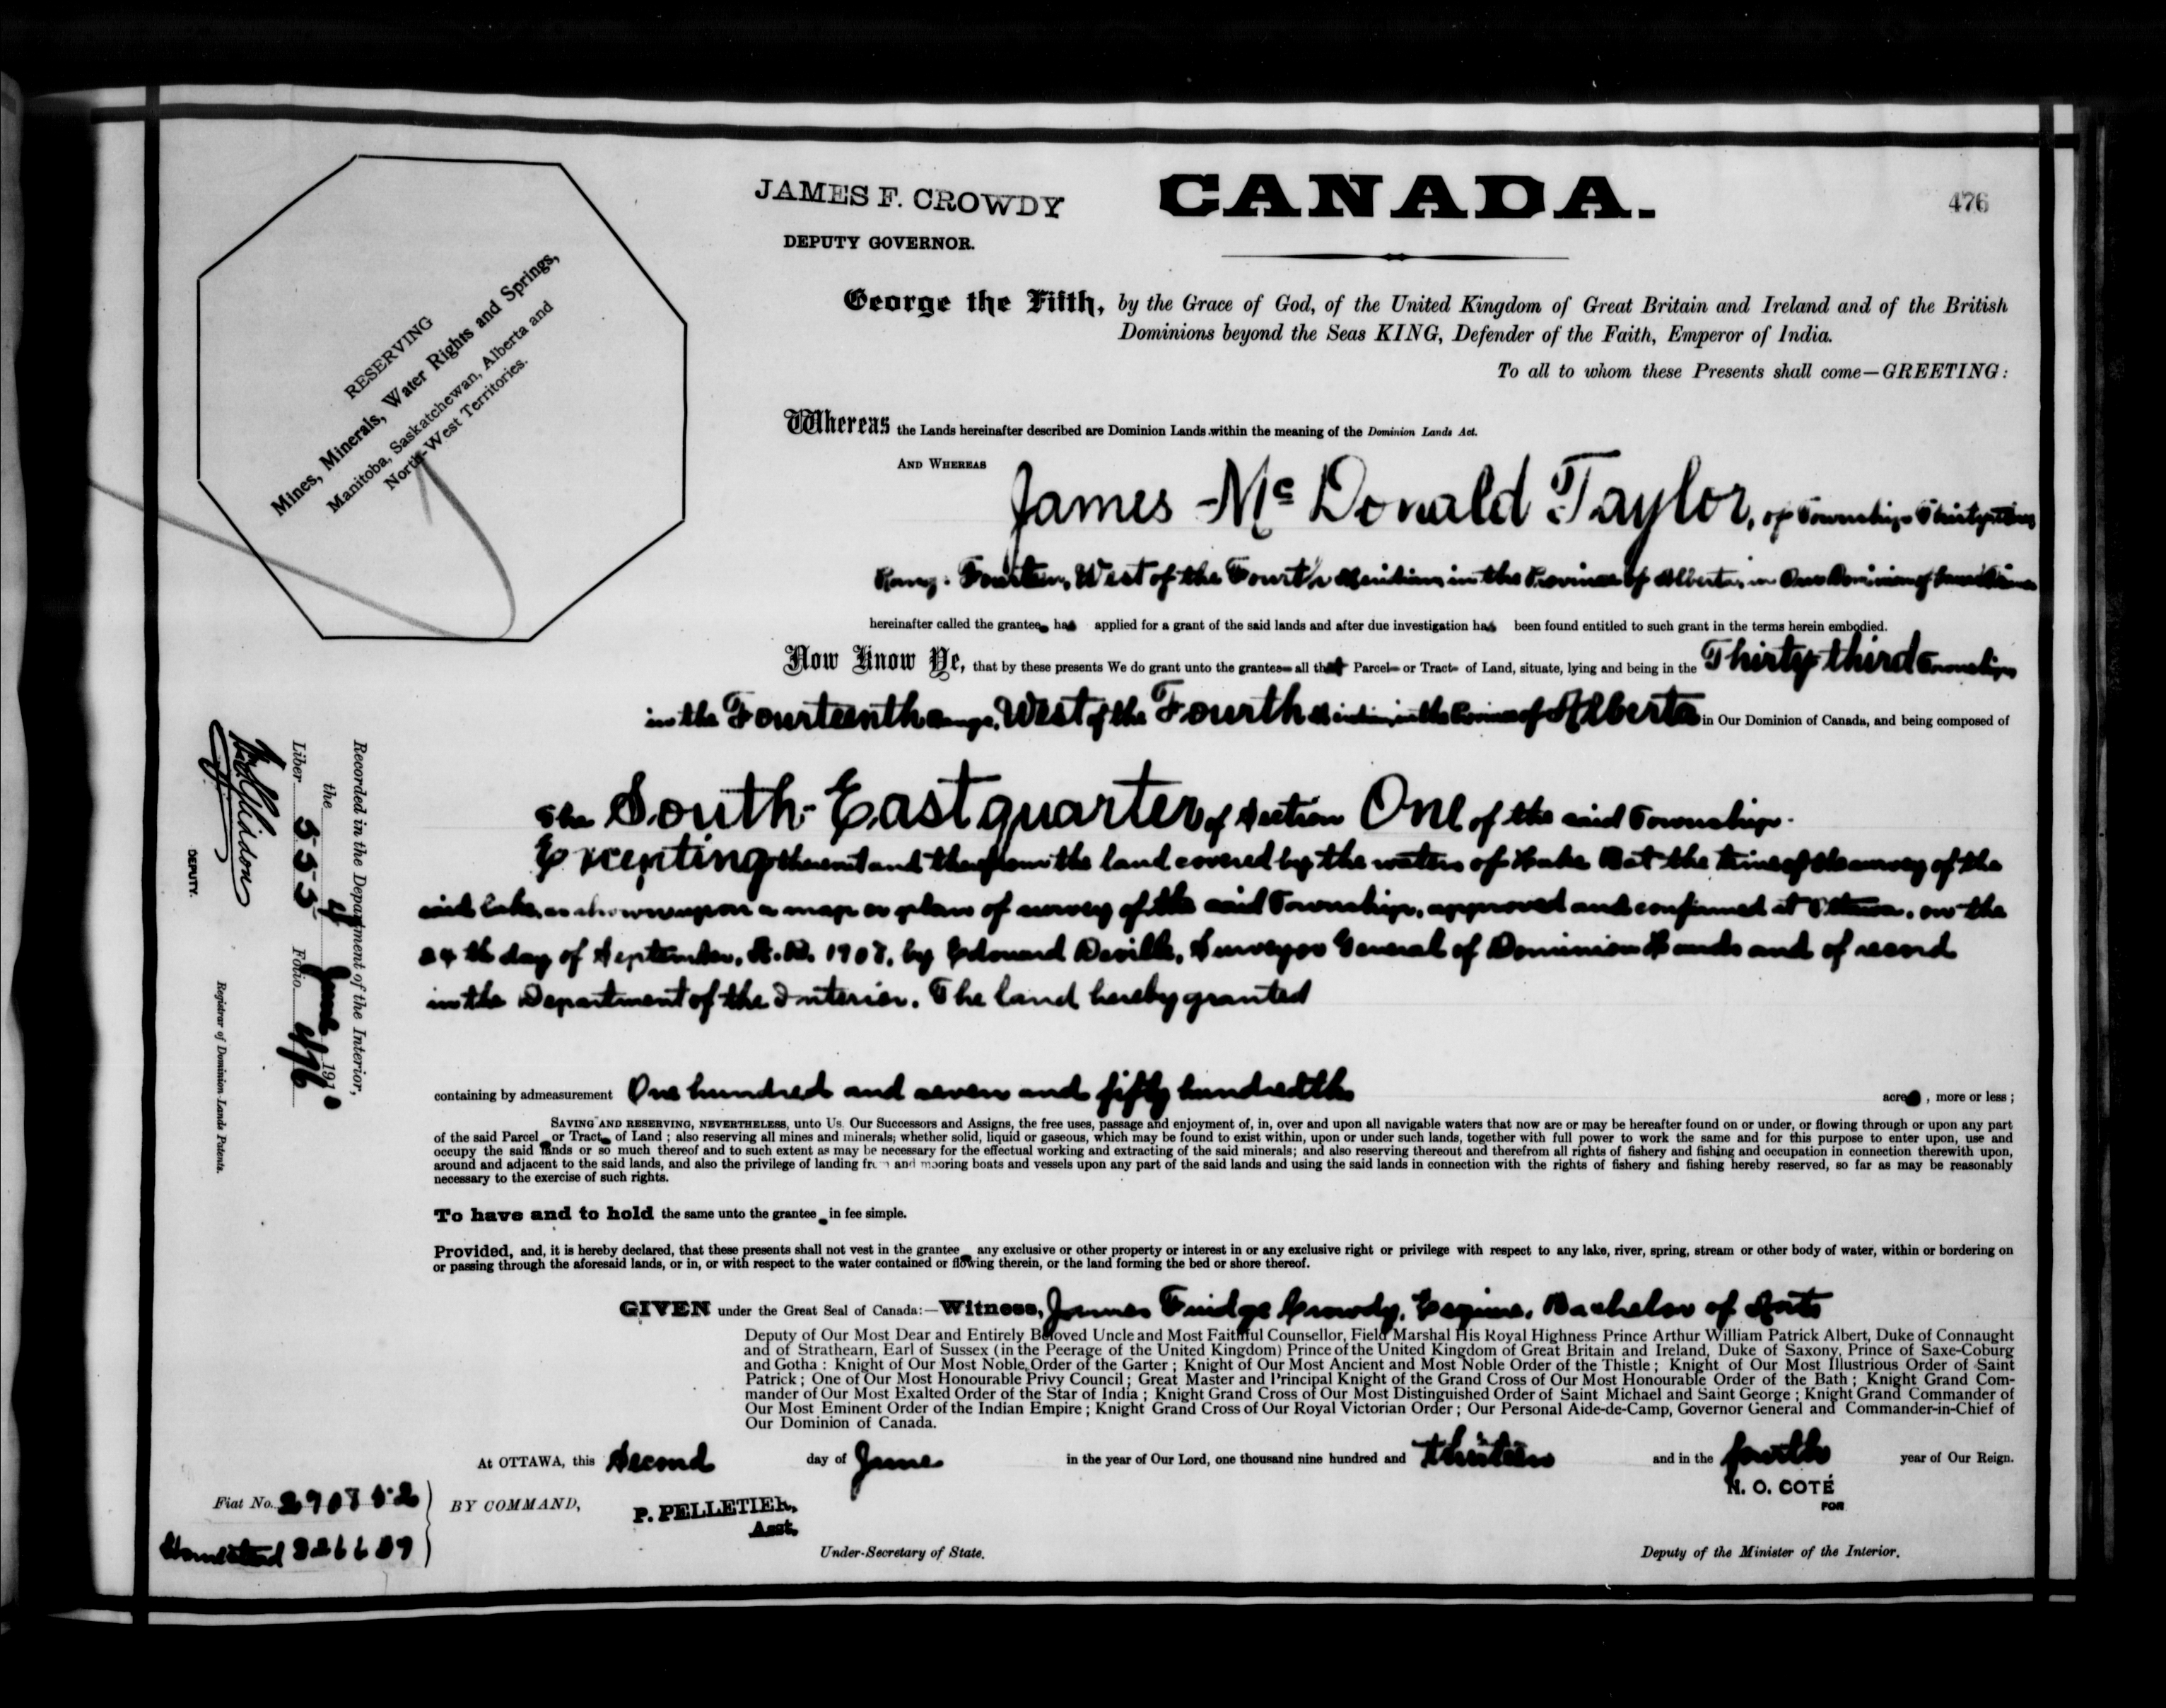 JAMES F. CROWDY
DEPUTY GOVERNOR.
CANADA.
476
RESERVING
Mines, Minerals, Water Rights and Springs,
Manitoba, Saskatchewan, Alberta and
North-West Territories.
George the Fifth, by the Grace of God, of the United Kingdom of Great Britain and Ireland and of the British
Dominions beyond the Seas KING, Defender of the Faith, Emperor of India.
To all to whom these Presents shall come—GREETING:
Whereas the Lands hereinafter described are Dominion Lands within the meaning of the Dominion Lands Act.
AND WHEREAS
James McDonald Taylor, of Township Thirty-three
Range Fourteen, West of the Fourth Meridian in the Province of Alberta, in Our Dominion of Canada
hereinafter called the grantee has applied for a grant of the said lands and after due investigation has been found entitled to such grant in the terms herein embodied.
Now Know Ye, that by these presents We do grant unto the grantee all that Parcel or Tract of Land, situate, lying and being in the Thirty-third Township
in the Fourteenth Range, West of the Fourth Meridian in the Province of Alberta in Our Dominion of Canada, and being composed of
The South-East quarter of Section One of the said Township.
Excepting thereout and therefrom the land covered by the waters of Lake at the time of the survey of the
said Lake, as shown upon a map or plan of survey of the said Township, approved and confirmed at Ottawa, on the
24th day of September, A.D. 1907, by Edouard Deville, Surveyor General of Dominion Lands and of record
in the Department of the Interior. The land hereby granted
containing by admeasurement One hundred and seven and fifty hundredths acres, more or less;
SAVING AND RESERVING, NEVERTHELESS, unto Us Our Successors and Assigns, the free uses, passage and enjoyment of, in, over and upon all navigable waters that now are or may be hereafter found on or under, or flowing through or upon any part
of the said Parcel or Tract of Land; also reserving all mines and minerals; whether solid, liquid or gaseous, which may be found to exist within, upon or under such lands, together with full power to work the same and for this purpose to enter upon, use and
occupy the said lands or so much thereof and to such extent as may be necessary for the effectual working and extracting of the said minerals; and also reserving thereout and therefrom all rights of fishery and fishing and occupation in connection therewith upon,
around and adjacent to the said lands, and also the privilege of landing from and mooring boats and vessels upon any part of the said lands and using the said lands in connection with the rights of fishery and fishing hereby reserved, so far as may be reasonably
necessary to the exercise of such rights.
To have and to hold the same unto the grantee in fee simple.
Provided, and, it is hereby declared, that these presents shall not vest in the grantee any exclusive or other property or interest in or any exclusive right or privilege with respect to any lake, river, spring, stream or other body of water, within or bordering on
or passing through the aforesaid lands, or in, or with respect to the water contained or flowing therein, or the land forming the bed or shore thereof.
GIVEN under the Great Seal of Canada:—Witness, James Fuidge Crowdy, Esquire, Bachelor of Arts
Deputy of Our Most Dear and Entirely Beloved Uncle and Most Faithful Counsellor, Field Marshal His Royal Highness Prince Arthur William Patrick Albert, Duke of Connaught
and of Strathearn, Earl of Sussex (in the Peerage of the United Kingdom) Prince of the United Kingdom of Great Britain and Ireland, Duke of Saxony, Prince of Saxe-Coburg
and Gotha: Knight of Our Most Noble Order of the Garter; Knight of Our Most Ancient and Most Noble Order of the Thistle; Knight of Our Most Illustrious Order of Saint
Patrick; One of Our Most Honourable Privy Council; Great Master and Principal Knight of the Grand Cross of Our Most Honourable Order of the Bath; Knight Grand Com-
mander of Our Most Exalted Order of the Star of India; Knight Grand Cross of Our Most Distinguished Order of Saint Michael and Saint George; Knight Grand Commander of
Our Most Eminent Order of the Indian Empire; Knight Grand Cross of Our Royal Victorian Order; Our Personal Aide-de-Camp, Governor General and Commander-in-Chief of
Our Dominion of Canada.
At OTTAWA, this Second day of June in the year of Our Lord, one thousand nine hundred and thirteen and in the fourth year of Our Reign.
N. O. COTÉ
FOR
Fiat No.
BY COMMAND,
P. PELLETIER,
Asst.
Homestead
Under-Secretary of State.
Deputy of the Minister of the Interior.
Recorded in the Department of the Interior,
the 4 June 191
Liber 555 Folio 476
DEPUTY.
Registrar of Dominion Lands Patents.